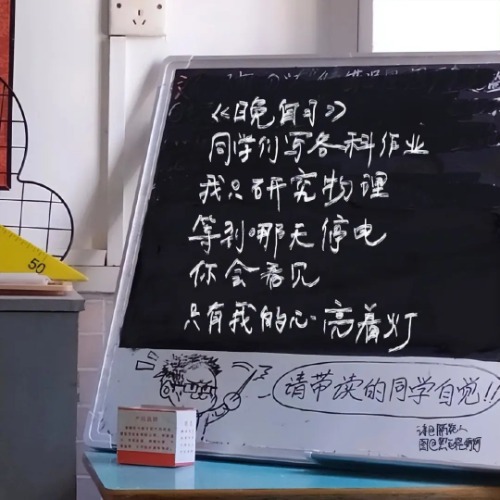 《晚自习》
同学们写各科作业
我只研究物理
等到哪天停电
你会看见
只有我的心高着灯
请带读的同学自觉!!
50